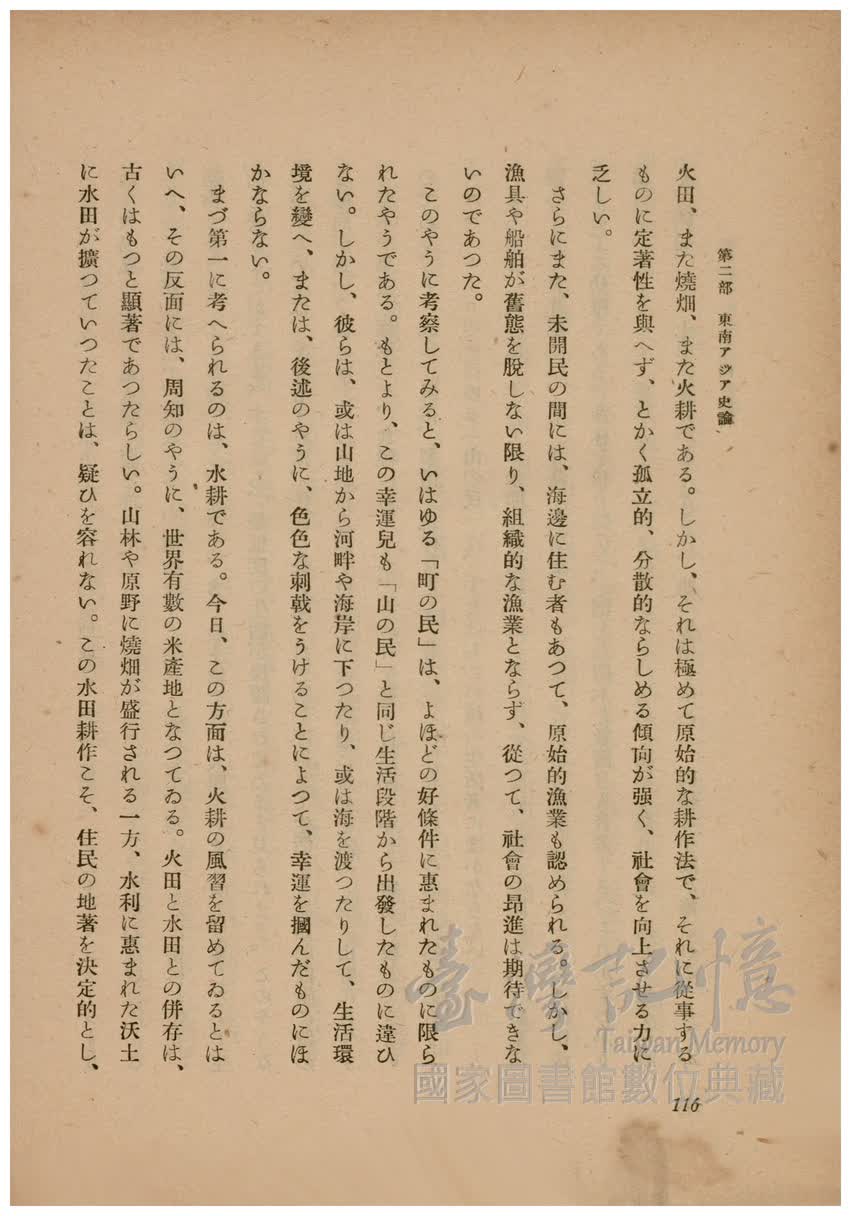 第二部　東南アジア史論
火田、また燒畑、また火耕である。しかし、それは極めて原始的な耕作法で、それに從事する
ものに定著性を與へず、とかく孤立的、分散的ならしめる傾向が强く、社會を向上させる力に
乏しい。
さらにまた、未開民の間には、海邊に住む者もあつて、原始的漁業も認められる。しかし、
漁具や船舶が舊態を脫しない限り、組織的な漁業とならず、從つて、社會の昂進は期待できな
いのであつた。
このやうに考察してみると、いはゆる「町の民」は、よほどの好條件に惠まれたものに限ら
れたやうである。もとより、この幸運兒も「山の民」と同じ生活段階から出發したものに違ひ
ない。しかし、彼らは、或は山地から河畔や海岸に下つたり、或は海を渡つたりして、生活環
境を變へ、または、後述のやうに、色色な刺戟をうけることによつて、幸運を摑んだものにほ
かならない。
まづ第一に考へられるのは、水耕である。今日、この方面は、火耕の風習を留めてゐるとは
いへ、その反面には、周知のやうに、世界有數の米產地となつてゐる。火田と水田との併存は、
古くはもつと顯著であつたらしい。山林や原野に燒畑が盛行される一方、水利に惠まれた沃土
に水田が擴つていつたことは、疑ひを容れない。この水田耕作こそ、住民の地著を決定的とし、
116
臺灣記憶
Taiwan Memory
國家圖書館數位典藏